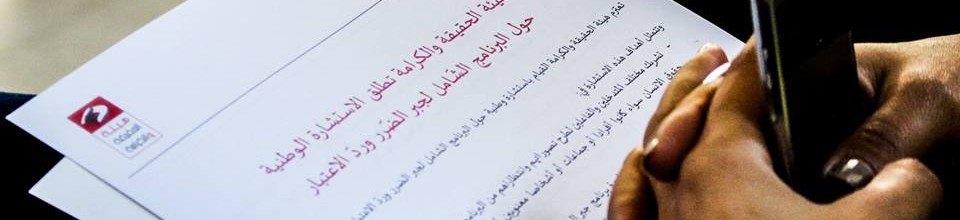 هيئة الحقيقة والكرامة تطلق الاستشارة الوطنية
حول البرنامج الشامل لجبر الضرر ورد الاعتبار
تعتزم هيئة الحقيقة والكرامة القيام باستشارة وطنية حول البرنامج الشامل لجبر الضرر ورد الاعتبار
وتتمثل أهداف هذه الاستشارة في:
- تشريك مختلف المتدخلين والفاعلين لطرح تصوراتهم وانتظاراتهم من البرنامج
حقوق الإنسان سواء كانوا أفرادا أو جماعات أو أشخاصا معنويين
هيئة
الحقيقة
والكرامة